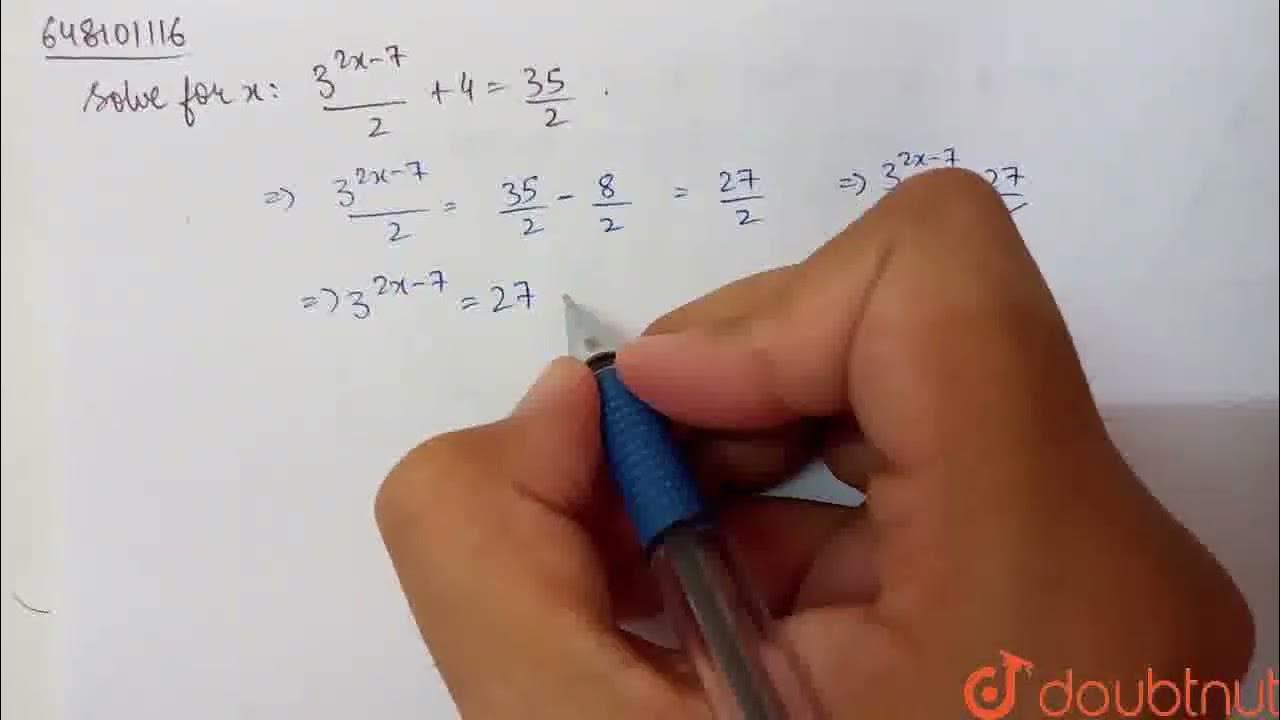 648101116
Solve for x: 3^(2x-7)/2 + 4 = 35/2 .
=> 3^(2x-7)/2 = 35/2 - 8/2 = 27/2 => 3^(2x-7) 27
=> 3^(2x-7) = 27
doubtnut